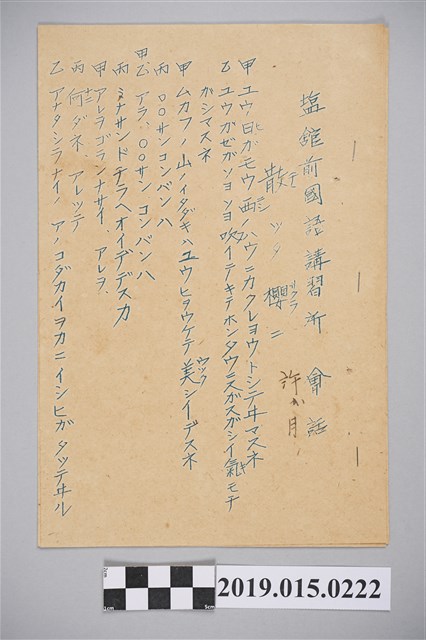 塩館前國語講習所 會話
許氷月
散ッタ櫻ニ
チ
サクラ
甲 ユウ日ガモウ西ノハウニカクレヨウトシテヰマスネ
ヒ
ニシ
乙 ユウガゼガソヨソヨ吹イテキテホンタウニスガスガシイ氣モチ
キ
ガシマスネ
甲 ムカフノ山ノイタダキハユウヒヲウケテ美シイデスネ
ウツク
丙 〇〇サンコンバンハ
甲乙 アラ、〇〇サン コンバンハ
丙 ミナサンドチラヘオイデデスカ
甲 アレヲゴランナサイ、アレヲ、
丙 何ダネ、アレッテ
ナニ
乙 アナタシラナイノ アノコダカイヲカニイシヒガタッテヰル
2019.015.0222
1cm
5cm